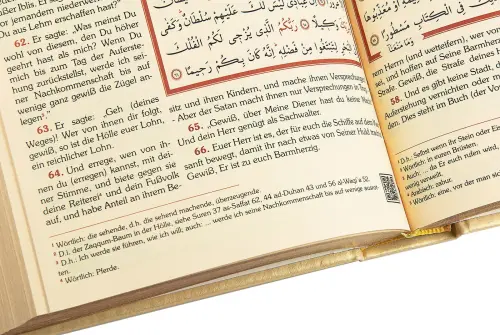 Du aus Lehm erschaffen hast?“
62. Er sagte: „Was meinst Du
wohl von diesem, den Du
geehrt hast als mich? Wenn Du
mich bis zum Tag der Auferste-
hung zurückstellst, werde ich sei-
ner Nachkommenschaft bis auf
wenige ganz gewiß die Zügel an-
legen³.“
63. Er sagte: „Geh (deines
Weges)! Wer von ihnen dir folgt,
gewiß, so ist die Hölle euer Lohn,
ein reichlicher Lohn.
64. Und errege, wen von ih-
nen du (erregen) kannst, mit dei-
ner Stimme, und biete gegen sie
deine Reiterei⁴ und dein Fußvolk
auf, und habe Anteil an ihrem Be-
لَيْسَ لَكَ عَلَيْهِمْ سُلْطَانٌ وَكَفَىٰ
وَكِيلًا رَبُّكُمُ الَّذِي يُزْجِي لَكُمُ الْفُلْكَ
لِتَبْتَغُوا مِنْ فَضْلِهِ إِنَّهُ كَانَ بِكُمْ رَحِيمًا
sitz und ihren Kindern, und mache ihnen Versprechungen.“
- Aber der Satan macht ihnen nur Versprechungen in
65. „Gewiß, über Meine Diener hast du keine
Und dein Herr genügt als Sachwalter.
66. Euer Herr ist es, der für euch die Schiffe auf dem
sanft bewegt, damit ihr nach etwas von Seiner Huld
Gewiß, Er ist zu euch Barmherzig.
¹ Wörtlich: die sehende, d.h. die sehend machende, überzeugende.
² D.i. der Zaqqum-Baum in der Hölle, siehe Suren 37 as-Saffat 62, 44 ad-Duhan 43 und 56 al-Waqi'a 52.
³ D.h.: Ich werde sie führen, wie ich will; auch: ... werde ich seine Nachkommenschaft bis auf wenige ausrot-
ten.
⁴ Wörtlich: Pferde.
فِي الْكِتَابِ مَسْطُورًا
Herrn (und wetteifern), wer von
und hoffen auf Seine Barmherz
Strafe. Gewiß, die Strafe deines H
58. Und es gibt keine Stadt, die
Auferstehung vernichten oder
den. Dies steht im Buch (der Vor
¹ D.h.: Selbst wenn ihr Stein oder
² Wörtlich: in euren Brüsten.
³ Auch: ... da Er euch rufen wird,
wenig verweilt.
⁴ Arabisch: zabur.
⁵ Wörtlich: eine, vor der man sich